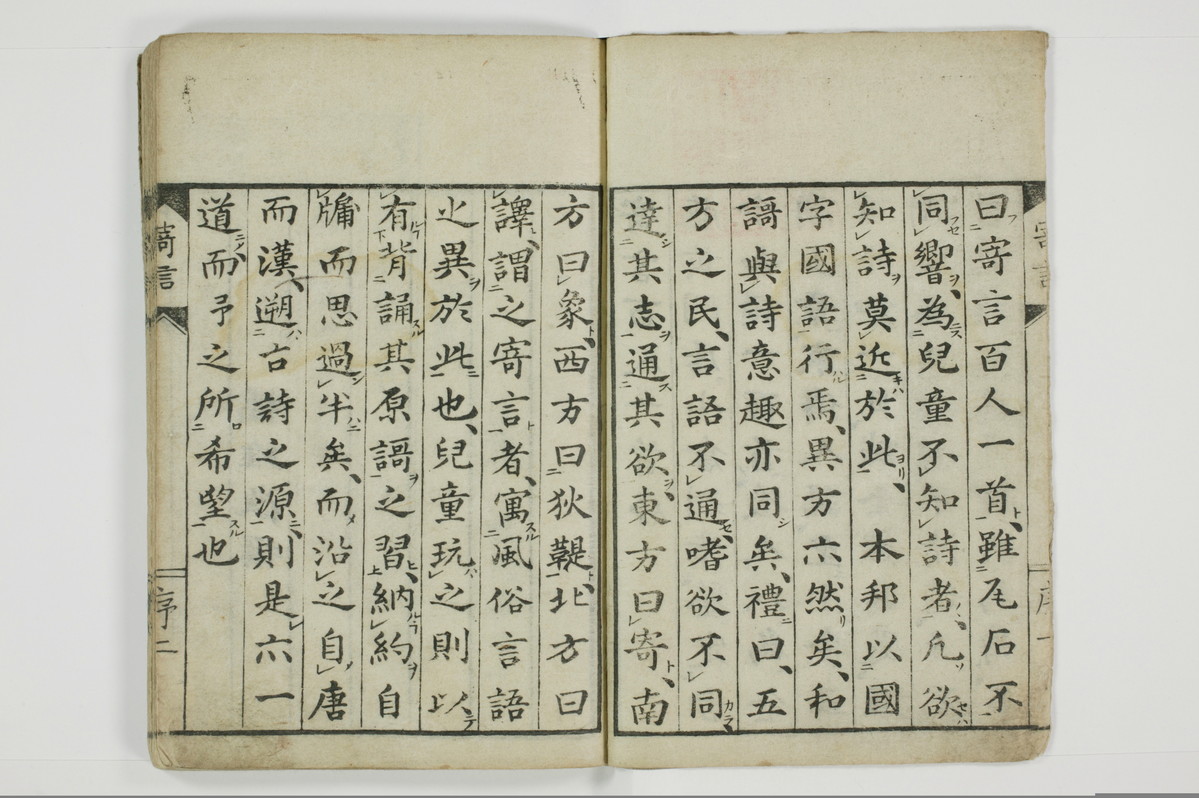 曰寄言百人一首、雖瓦石不
同響、為兒童不知詩者、凡欲
知詩莫近於此、　本邦以國
字國語行焉、異方亦然矣、和
謌與詩意趣亦同矣、禮曰、五
方之民、言語不通、嗜欲不同、
達其志通其欲、東方曰寄、南
方曰象、西方曰狄鞮、北方曰
譯、謂之寄言者、寓風俗言語
之異於此也、兒童玩之則以
有背誦其原謌之習、納約自
牖而思過半矣、而沿之自唐
而漢、遡古詩之源、則是六一
道而、予之所希望也
寄言
序一
寄言
序二